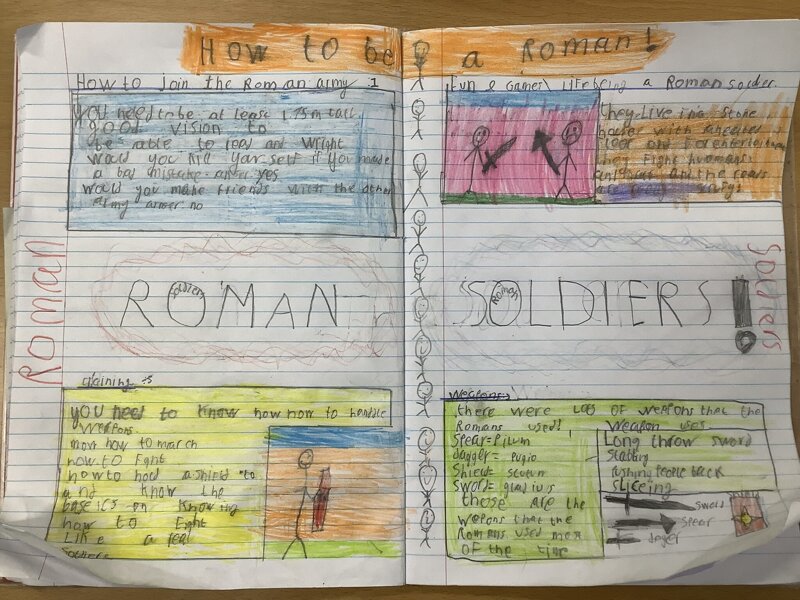 How to be a Roman!
How to join the Roman army 1
you need to be at least 1.75m tall
good vision to
be able to read and wright
would you kill yourself if you made
a bad mistake answer yes
would you make friends with the other
army answer: no
Fun & Games\ Life being a Roman soldier.
they Live in a stone
house with
floor and for entertainment
they fight humans
and
are
ROMAN
soldiers
ROMAN
Roman
SOLDIERS!
Roman
soldiers
training :s
you need to know how now to handle
Weapons
now how to march
how to fight
how to hold a shield to
and know the
baseics on knowing
how to fight
Like a real
Soldiere
Weapons
there were Lots of weapons that the
Romans used!
Spear= Pilum
dagger= pugio
Shield= scutum
Sword= gladius
those are the
wepons that the
Romans used most
of the time
Weapon uses
Long throw sword
Stabbing
pushing people back
sliceing
sword
spear